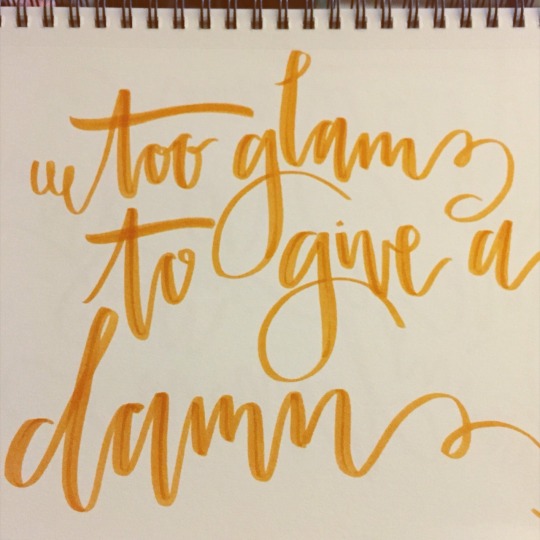 too glam
to give a
damn